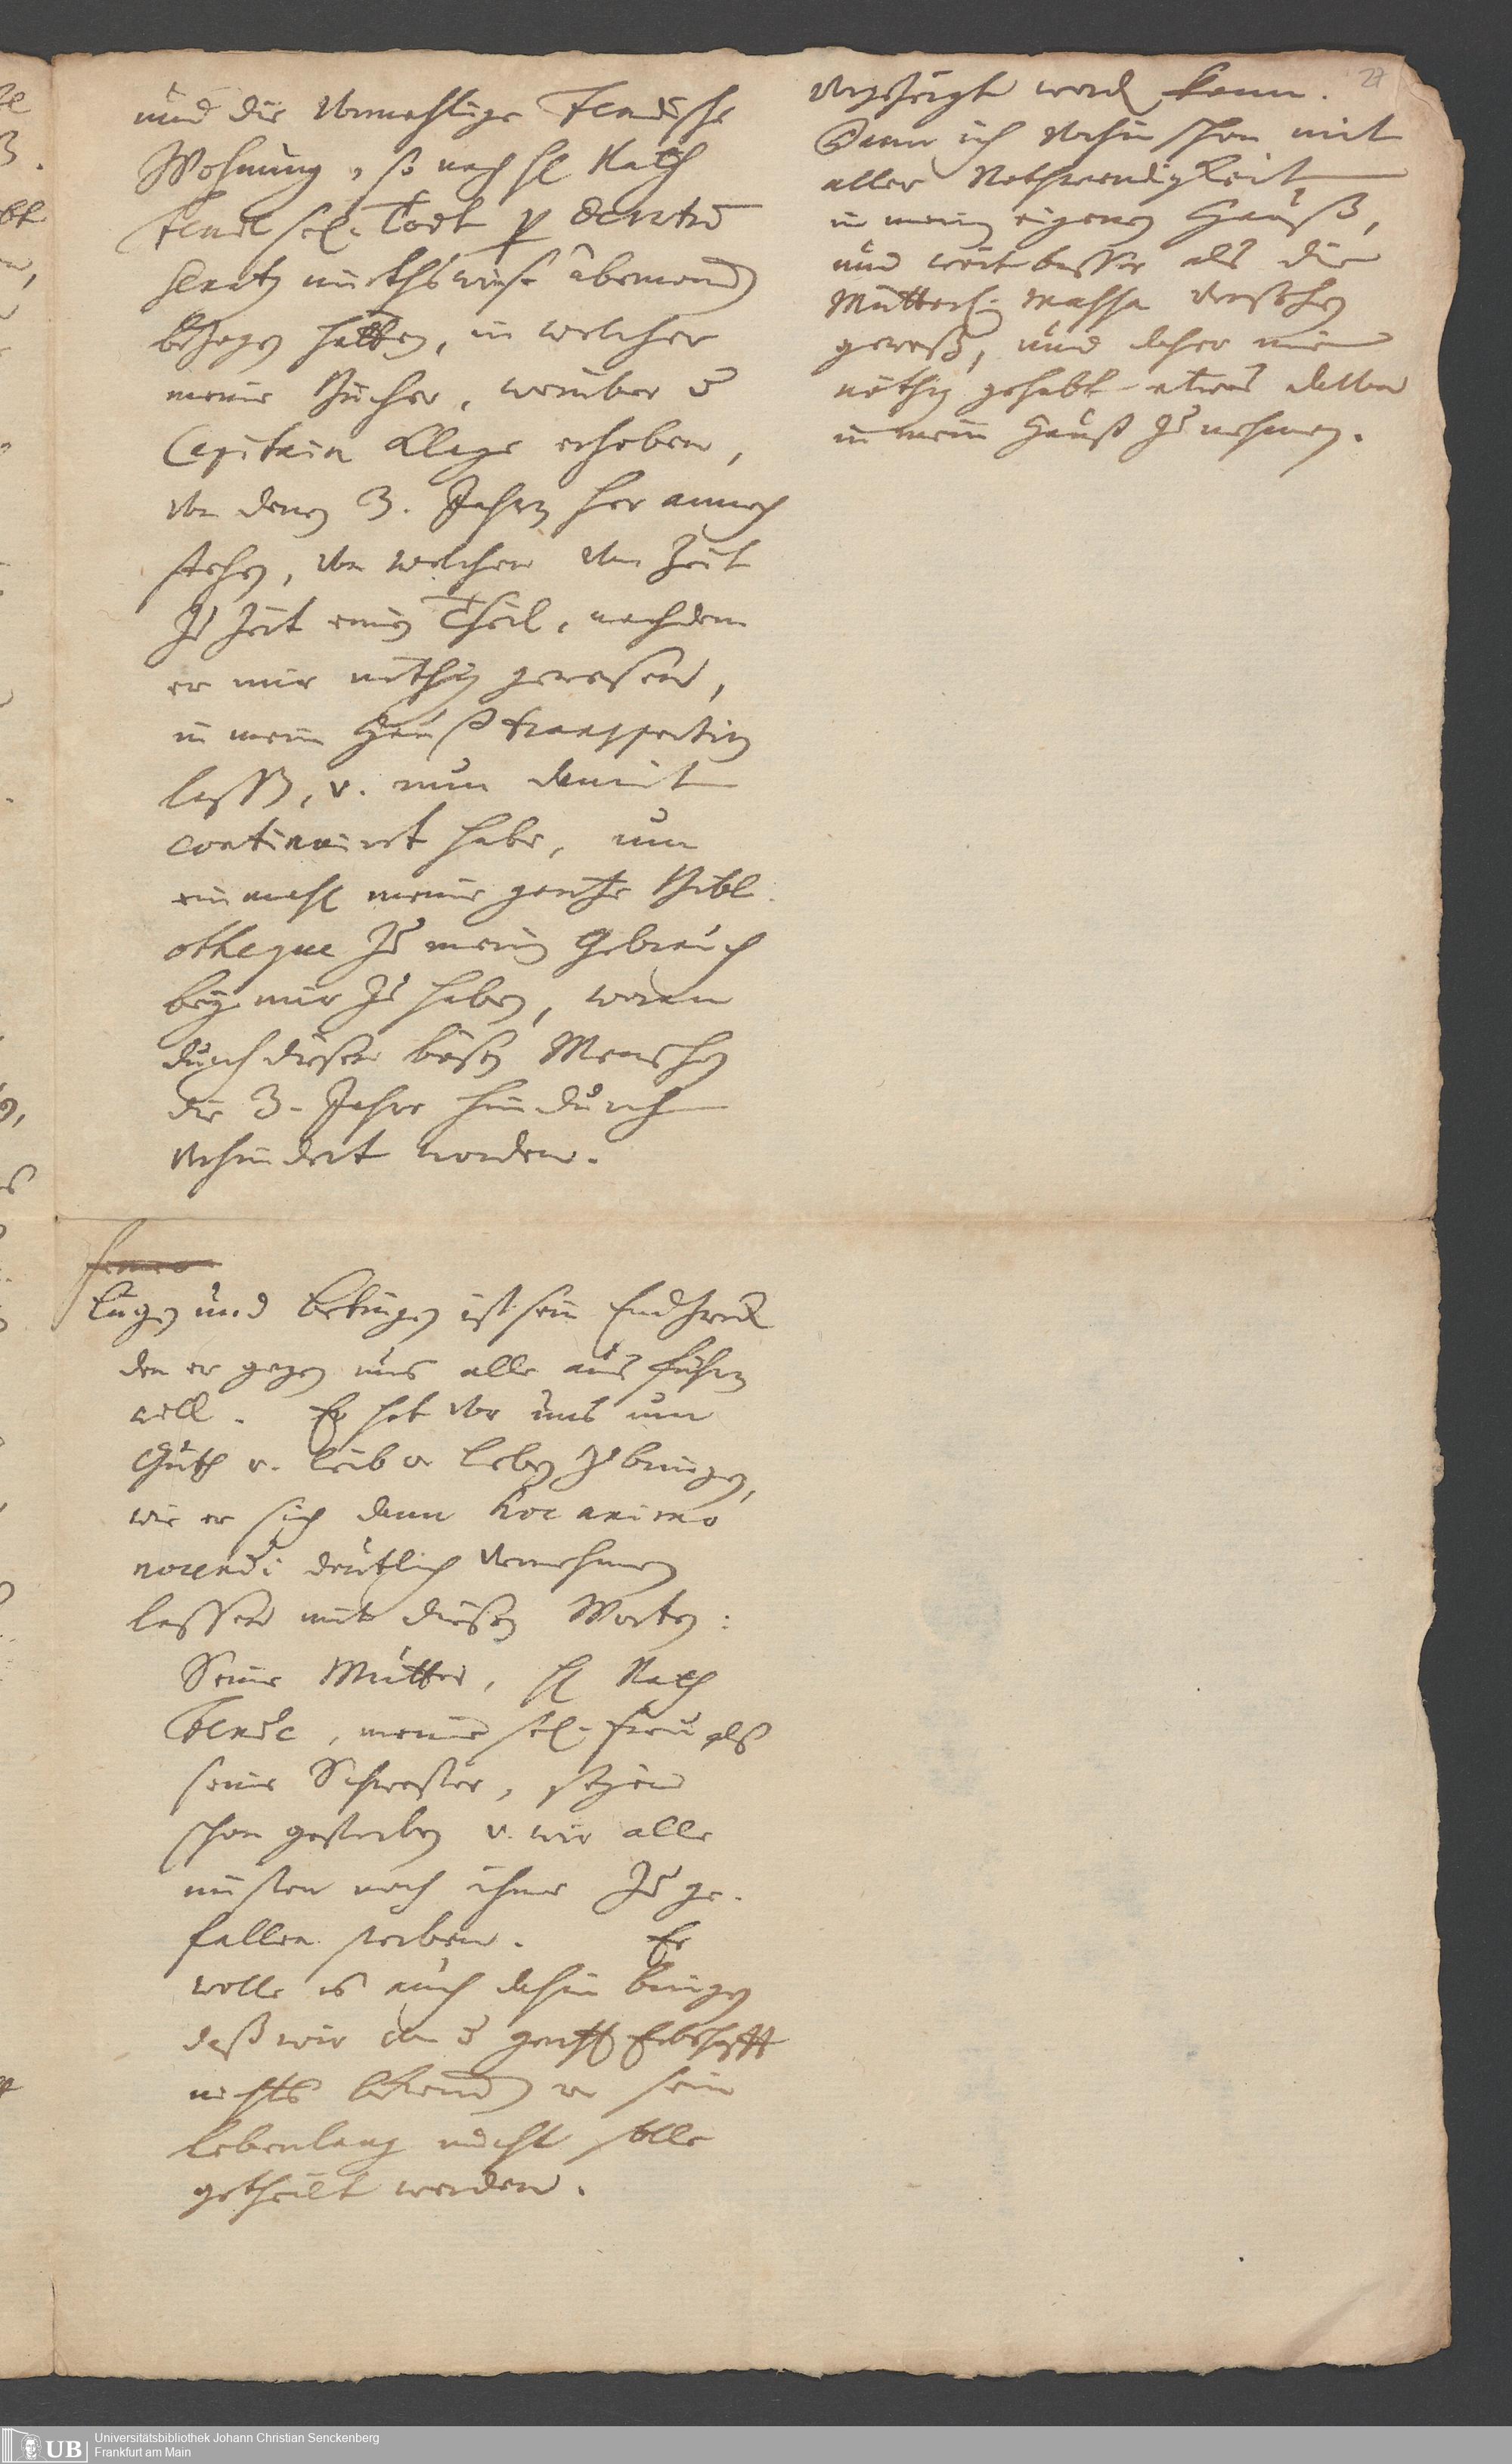 und die vormahlige Fendische
Wohnung, so nach H Rath
Fende sel. Todt
miethsweise
bezogen hatten, in welcher
meine Bücher, worüber d
Capitain Klage erhoben,
von denen 3. Jahren her annoch
stehen, von welchen von Zeit
zu Zeit einen Theil, nachdem
er mir nöthig gewesen,
in mein Hauß transportiren
lassen, v. nun damit
continuirt habe, um
einmahl meine gantze Bibl.
otheque zu meinem Gebrauch
bey mir zu haben, woran
durch diesen bösen Menschen
die 3. Jahre hindurch
verhindert worden.
Lügen und betrügen ist sein Endzweck
den er gegen uns alle ausführen
will. Er hat vor uns um
Guth v. Leib v. Leben zu bringen,
wie er sich dann hoc animo
nocendi deutlich vernehmen
lassen mit diesen Worten:
Seine Mutter, H Rath
Fende, meine sel. Frau als
seine Schwester, seyen
schon gestorben v. wir alle
müsten noch ihme zu ge-
fallen sterben. Er
wolle es auch dahin bringen
daß wir von d gantzen Erbschafft
nichts bekommen v. sein
Lebenlang nicht solle
getheilt werden.
27
werden kann.
Dann ich vorhin schon mit
aller Nothwendigkeit
in meinem eigenen Hauß,
und weit besser als die
Mütterl. massa versehen
geweß, und daher nie
nöthig gehabt etwas davon
in mein Hauß zu nehmen.
UB
Universitätsbibliothek Johann Christian Senckenberg
Frankfurt am Main